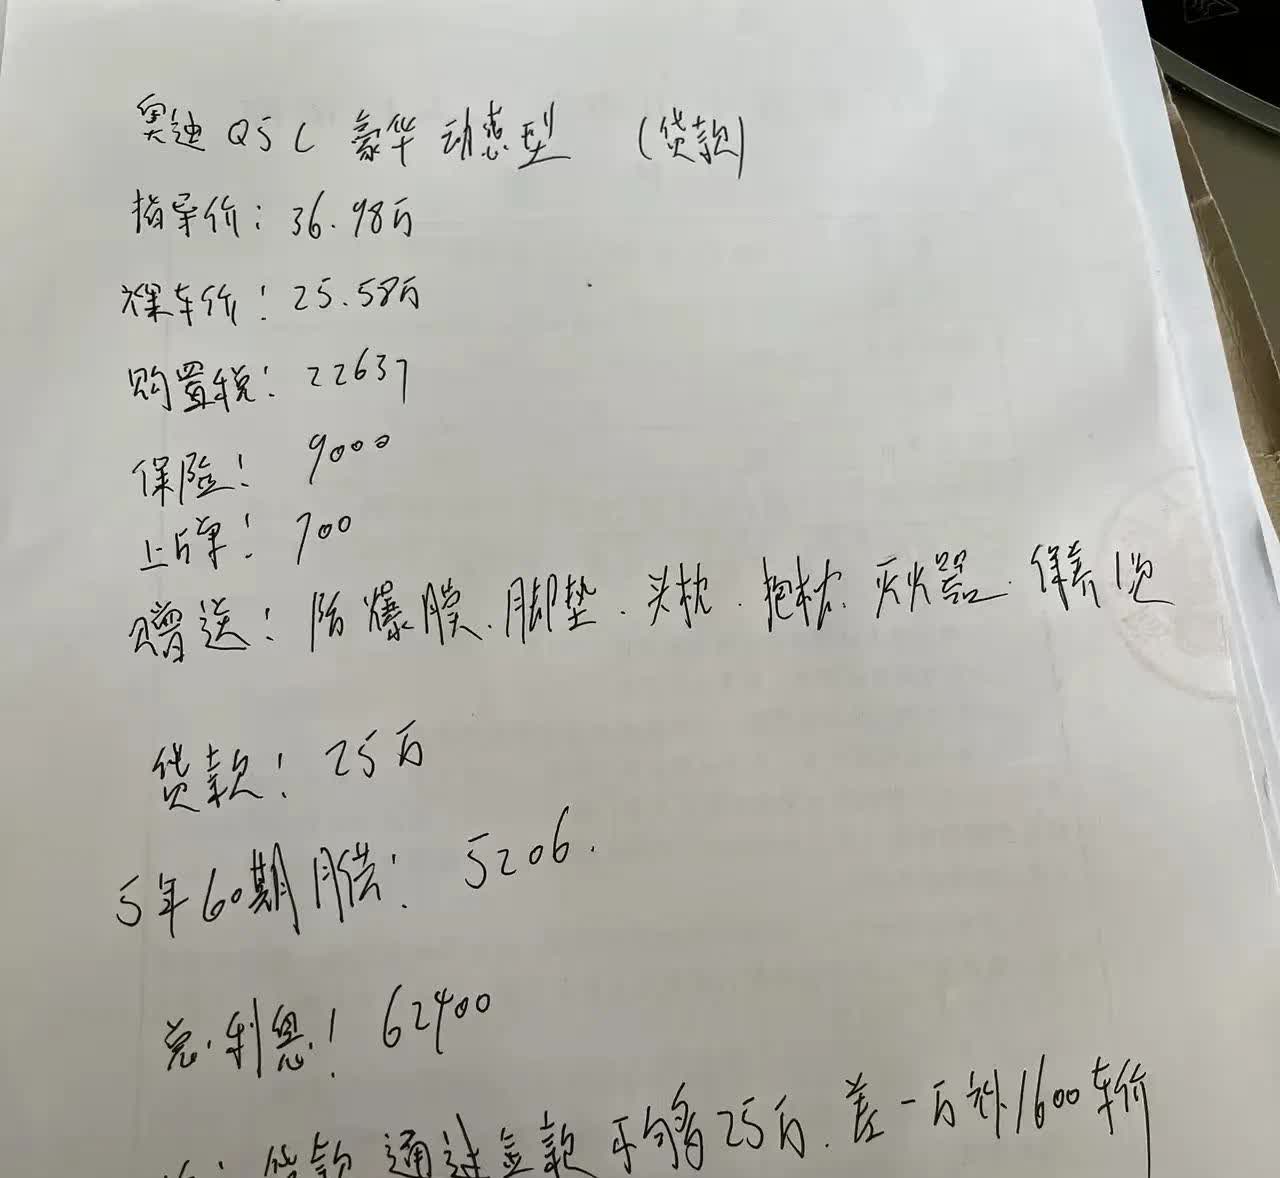 奥迪 Q5L 豪华动感型 (贷款)
指导价: 36.98万
裸车价: 25.58万
购置税: 22637
保险: 9000
上牌: 700
赠送: 防爆膜、脚垫、头枕、抱枕、灭火器、保养1次
贷款: 25万
5年60期月供: 5206.
总利息: 62400
贷款通过金额不够25万. 差一万补1600车价